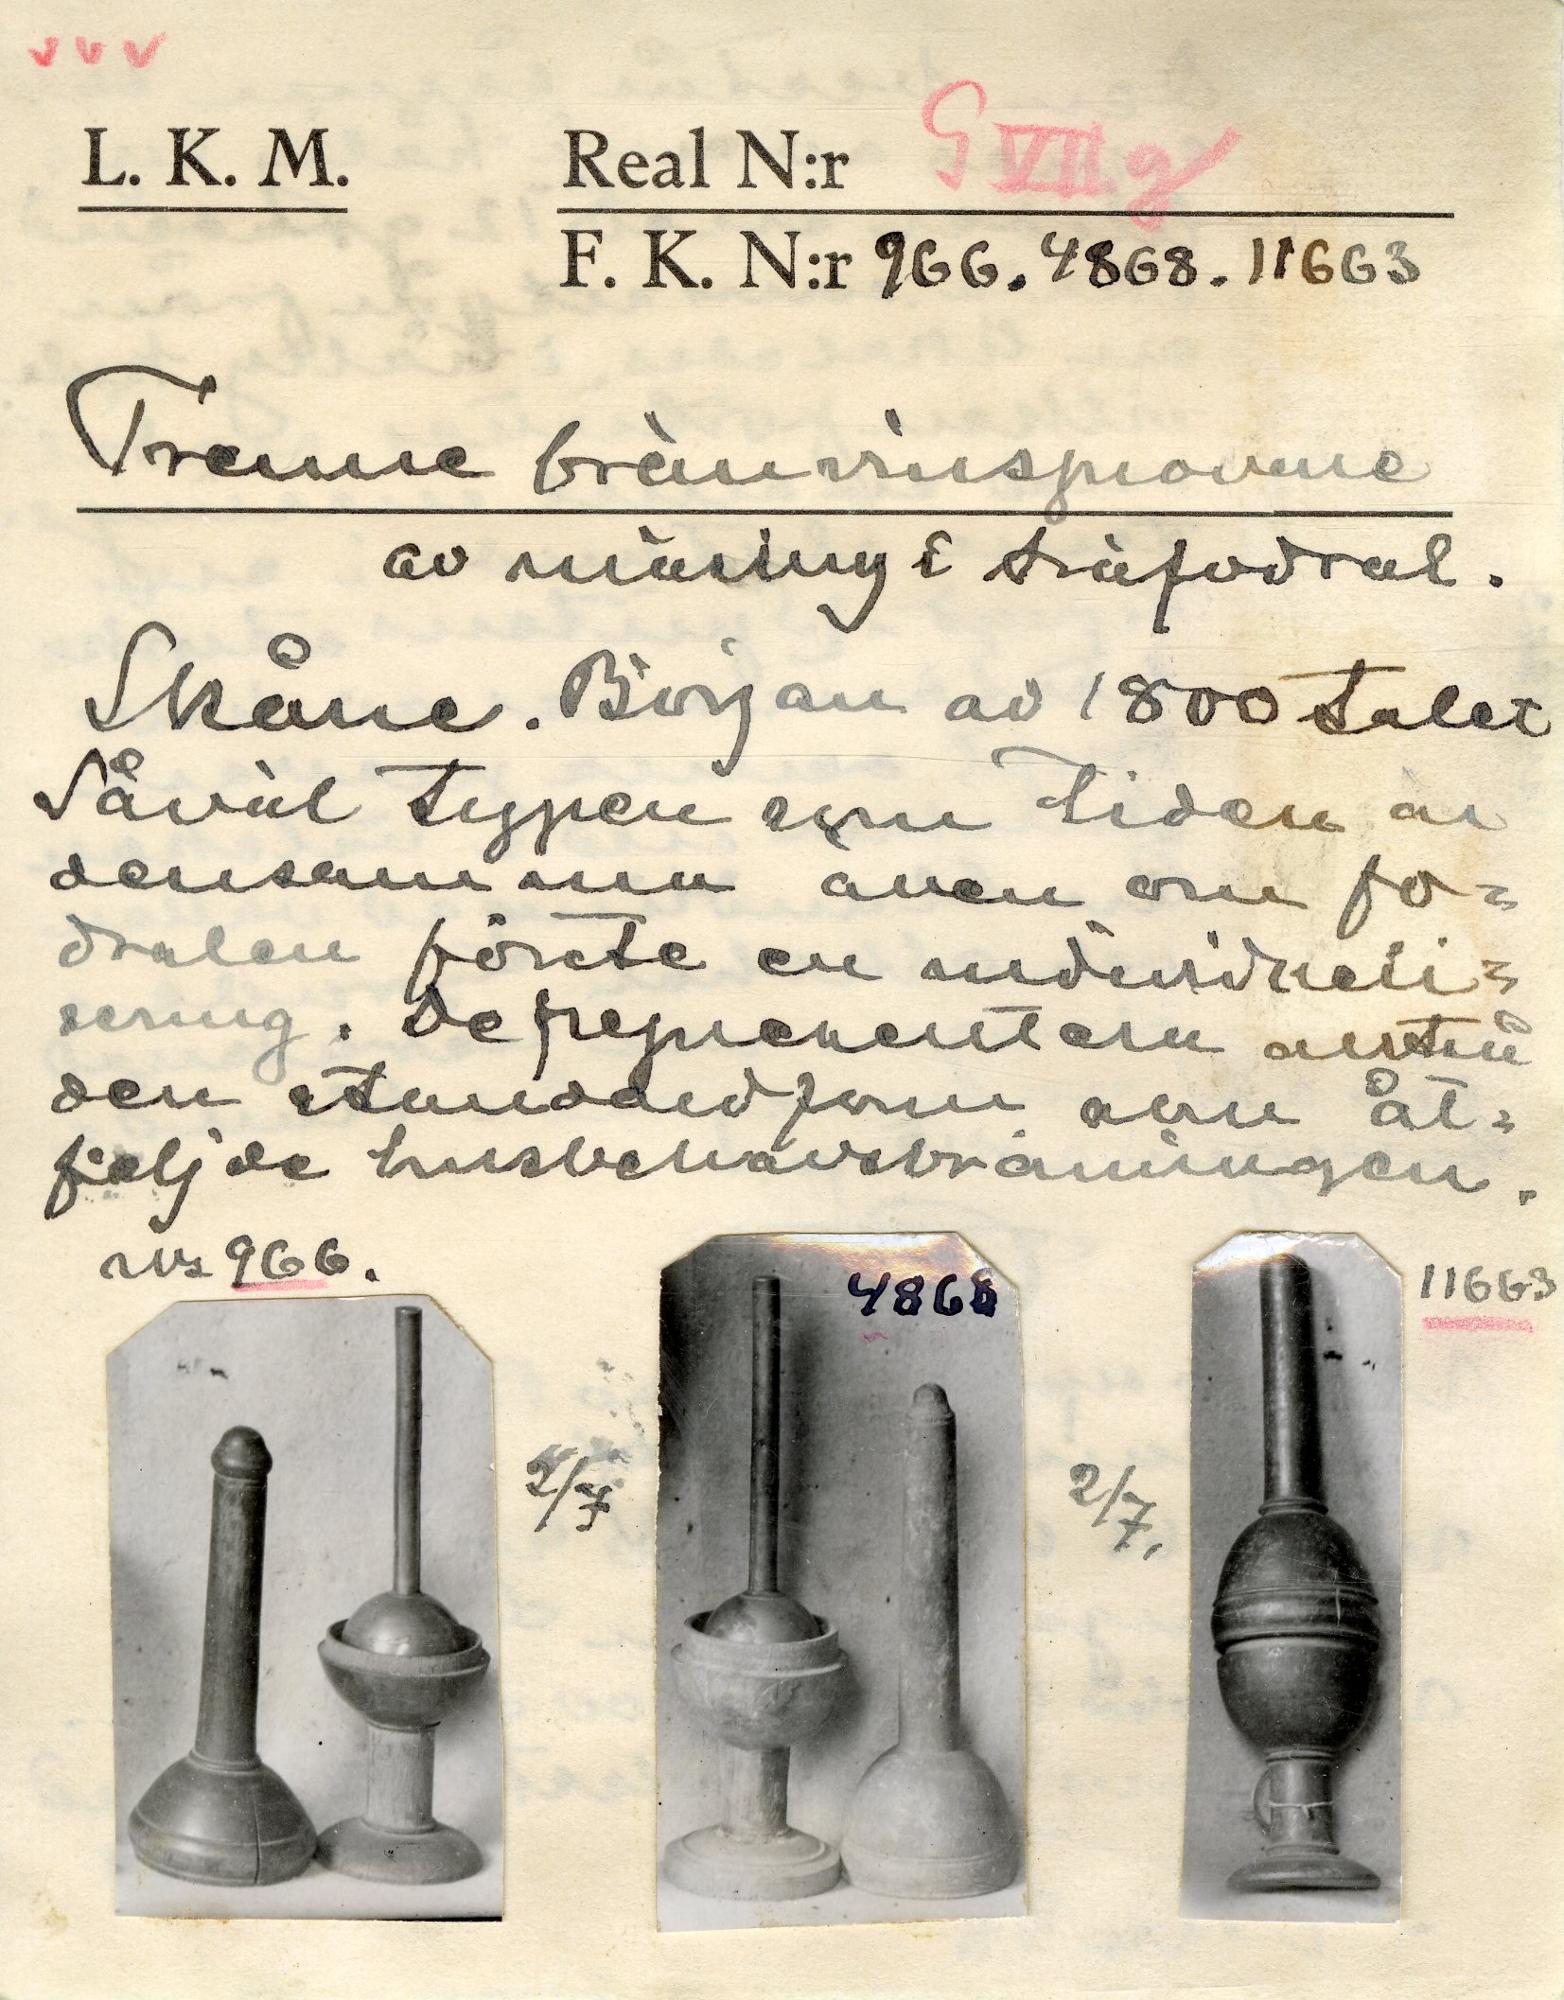 v v v
L. K. M. Real N:r G VII g
F. K. N:r 966. 4868. 11663
Trenne brännvinsprovare
av mässing i träfodral.
Skåne. Början av 1800 talet
Såväl typen som tiden är
densamma även om fo=
dralen förete en individuali=
sering. De representera alltså
den standardform som åt=
följde husbehovsbränningen.
nr 966.
4868
11663
2/7
2/7.